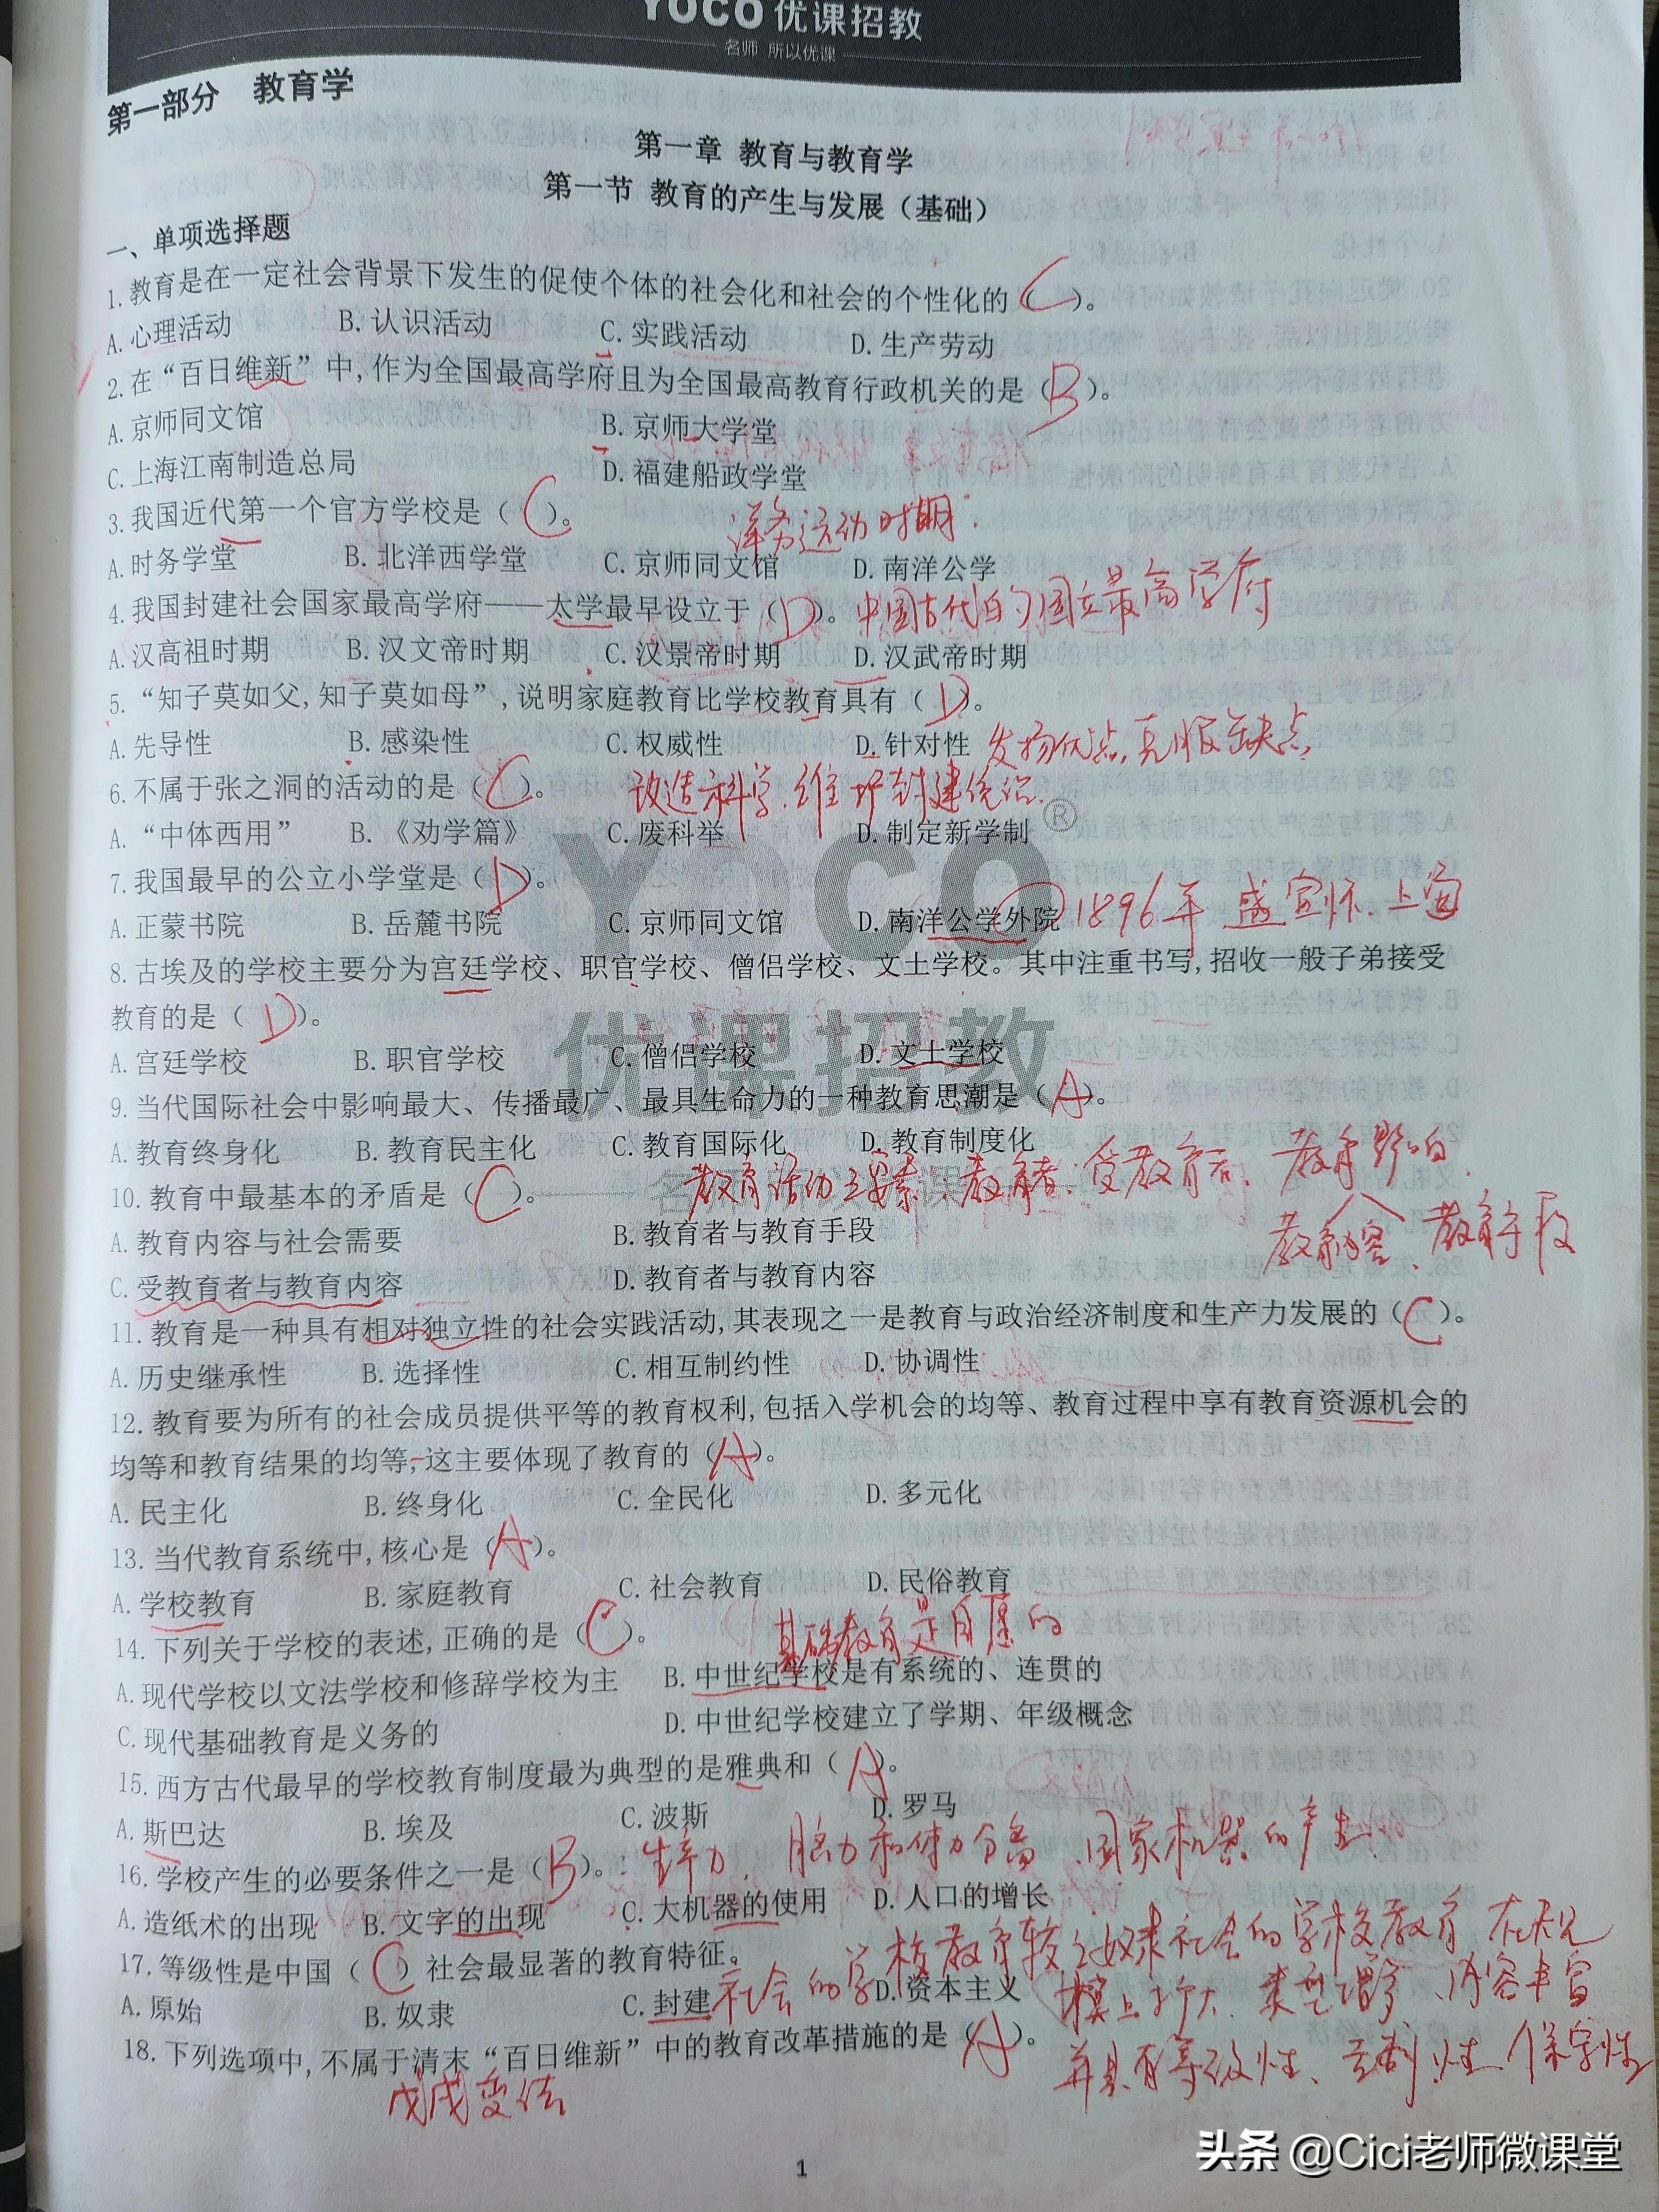 YOCO 优课招教
名师 所以优课
第一部分 教育学
第一章 教育与教育学
第一节 教育的产生与发展（基础）
一、单项选择题
1.教育是在一定社会背景下发生的促使个体的社会化和社会的个性化的（C）。
A.心理活动 B.认识活动 C.实践活动 D.生产劳动
2.在“百日维新”中,作为全国最高学府且为全国最高教育行政机关的是（B）。
A.京师同文馆 B.京师大学堂
C.上海江南制造总局 D.福建船政学堂
3.我国近代第一个官方学校是（C）。 洋务运动时期.
A.时务学堂 B.北洋西学堂 C.京师同文馆 D.南洋公学
4.我国封建社会国家最高学府——太学最早设立于（D）。中国古代的国立最高学府
A.汉高祖时期 B.汉文帝时期 C.汉景帝时期 D.汉武帝时期
5.“知子莫如父,知子莫如母”,说明家庭教育比学校教育具有（D）。
A.先导性 B.感染性 C.权威性 D.针对性 发扬优点,克服缺点
6.不属于张之洞的活动的是（C）。 改造科学.维护封建统治.
A.“中体西用” B.《劝学篇》 C.废科举 D.制定新学制
7.我国最早的公立小学堂是（D）。
A.正蒙书院 B.岳麓书院 C.京师同文馆 D.南洋公学外院 1896年 盛宣怀、上海
8.古埃及的学校主要分为宫廷学校、职官学校、僧侣学校、文士学校。其中注重书写,招收一般子弟接受
教育的是（D）。
A.宫廷学校 B.职官学校 C.僧侣学校 D.文士学校
9.当代国际社会中影响最大、传播最广、最具生命力的一种教育思潮是（A）。
A.教育终身化 B.教育民主化 C.教育国际化 D.教育制度化
10.教育中最基本的矛盾是（C）。 教育活动三要素:教育者、受教育者、教育影响
教育内容、教育手段
A.教育内容与社会需要 B.教育者与教育手段
C.受教育者与教育内容 D.教育者与教育内容
11.教育是一种具有相对独立性的社会实践活动,其表现之一是教育与政治经济制度和生产力发展的（C）。
A.历史继承性 B.选择性 C.相互制约性 D.协调性
12.教育要为所有的社会成员提供平等的教育权利,包括入学机会的均等、教育过程中享有教育资源机会的
均等和教育结果的均等,这主要体现了教育的（A）。
A.民主化 B.终身化 C.全民化 D.多元化
13.当代教育系统中,核心是（A）。
A.学校教育 B.家庭教育 C.社会教育 D.民俗教育
14.下列关于学校的表述,正确的是（C）。 基础教育是自愿的
A.现代学校以文法学校和修辞学校为主 B.中世纪学校是有系统的、连贯的
C.现代基础教育是义务的 D.中世纪学校建立了学期、年级概念
15.西方古代最早的学校教育制度最为典型的是雅典和（A）。
A.斯巴达 B.埃及 C.波斯 D.罗马
16.学校产生的必要条件之一是（B）。:生产力、脑力和体力分离、国家机器的产生.
A.造纸术的出现 B.文字的出现 C.大机器的使用 D.人口的增长
17.等级性是中国（C）社会最显著的教育特征。
A.原始 B.奴隶 C.封建 D.资本主义
社会的学校教育较之奴隶社会的学校教育 在规
模上扩大、类型增多、内容丰富
并具有等级性、专制性、保守性
18.下列选项中,不属于清末“百日维新”中的教育改革措施的是（A）。
戊戌变法
1
YOCO®
优课招教
头条 @Cici老师微课堂